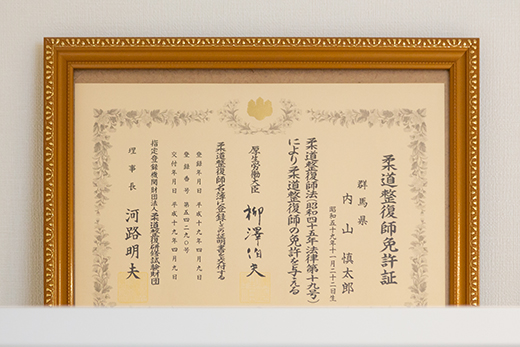 柔道整復師免許証
群馬県
内山慎太郎
昭和五十九年十一月二十二日生
柔道整復師法(昭和四十五年法律第十九号)
により柔道整復師の免許を与える
厚生労働大臣 柳澤伯夫
柔道整復師名簿に登録しこの証明書を交付する
登録年月日 平成十九年四月九日
登録番号 第五四二九〇号
交付年月日 平成十九年四月九日
指定登録機関財団法人柔道整復研修試験財団
理事長 河路明夫